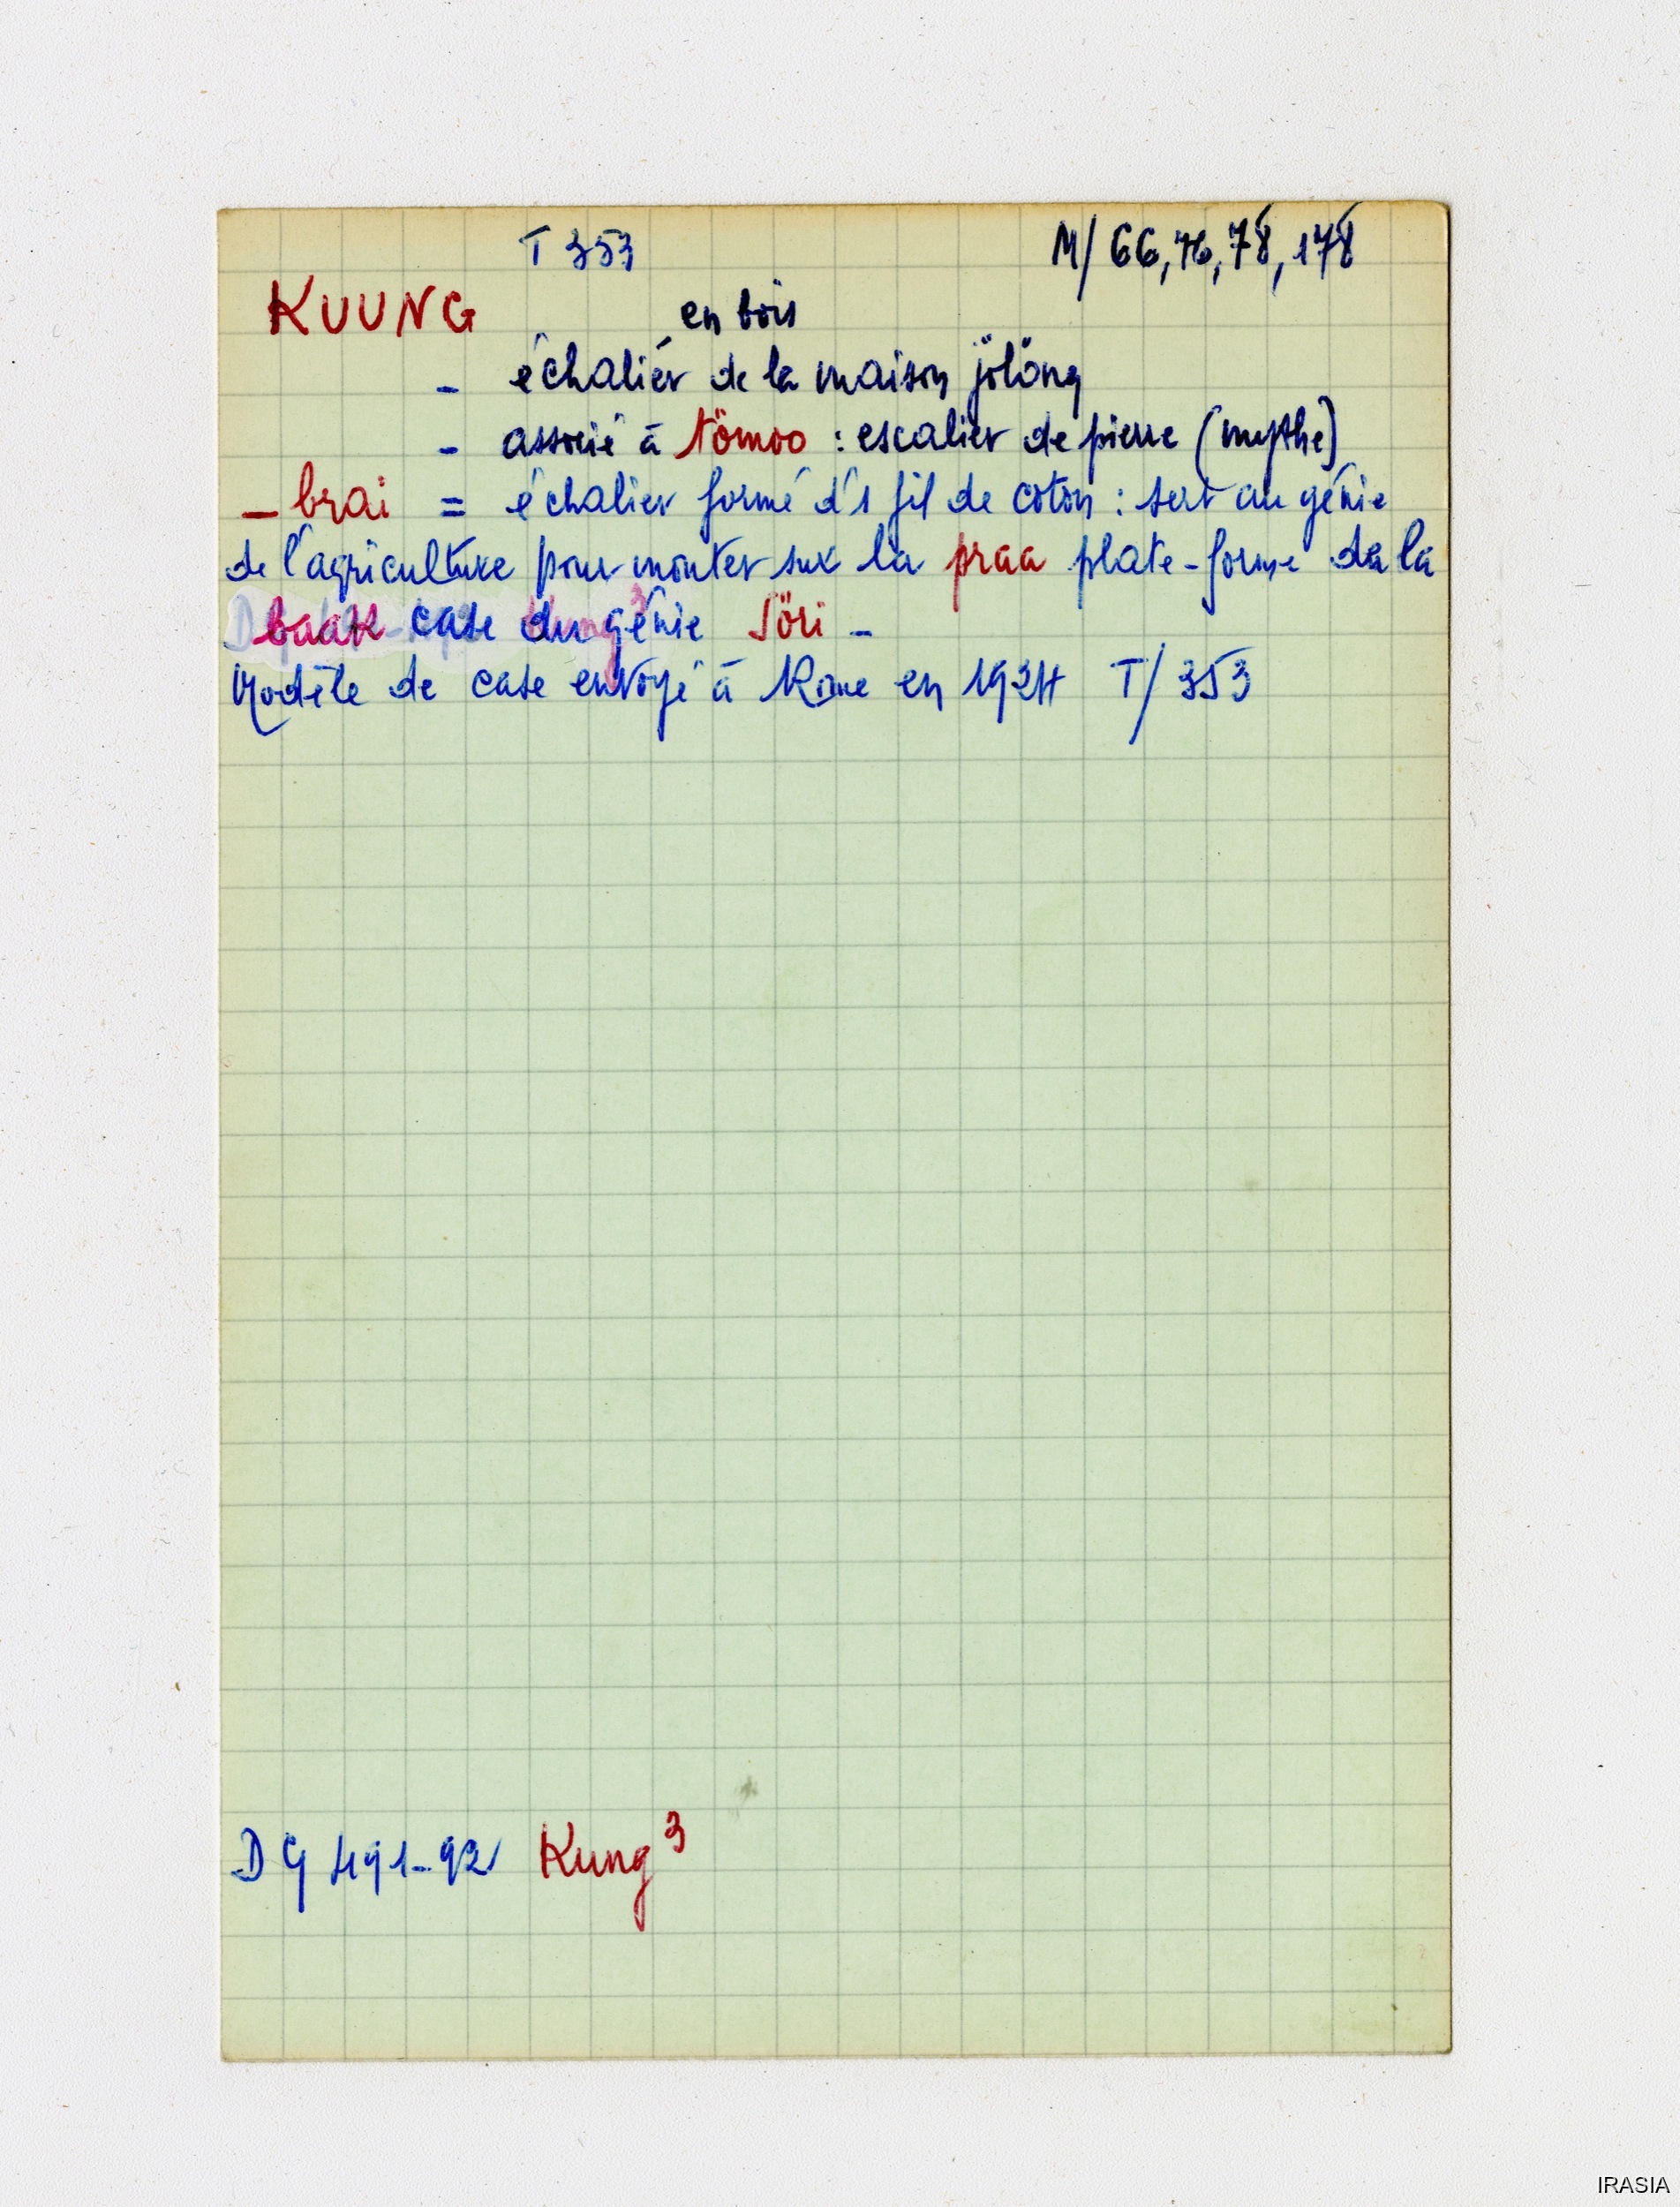 T 353 M/ 66, 76, 78, 178
KUUNG en bois
- échalier de la maison jölöng
- associé à tömoo : escalier de pierre (mythe)
- brai = échalier formé d'1 fil de coton : sert au génie
de l'agriculture pour monter sur la praa plate-forme de la
baak case du génie Söri -
Modèle de case envoyé à Rome en 1924 T/ 353
DG 491-92 Kung³
IRASIA